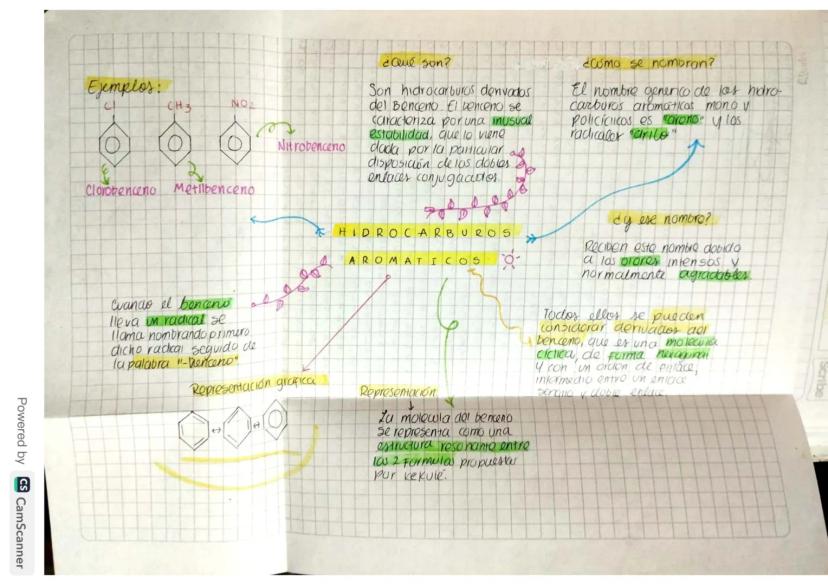 Ejemplos:
Cl
CH3
NO2
Nitrobenceno
Clorobenceno
Metilbenceno
¿Qué son?
Son hidrocarburos derivados
del Benceno. El benceno se
caracteriza por una inusual
estabilidad, que le viene
dada por la particular
disposición de los dobles
enlaces conjugados.
¿Cómo se nombran?
El nombre generico de los hidro-
carburos aromáticos mono y
policíclicos es "areno" y los
radicales "arilo"
HIDROCARBUROS
AROMATICOS
¿y ese nombre?
Reciben este nombre debido
a los olores intensos y
normalmente agradables.
Cuando el benceno
lleva un radical se
llama nombrando primero
dicho radical seguido de
la palabra "-benceno"
Todos ellos se pueden
considerar derivados del
benceno, que es una molecula
cíclica, de forma hexagonal
y con un orden de enlace,
intermedio entre un enlace
sencillo y doble enlace.
Representación gráfica
Representación
La molecula del benceno
se representa como una
estructura resonante entre
las 2 formulas propuestas
por kekulé.
Powered by CS CamScanner